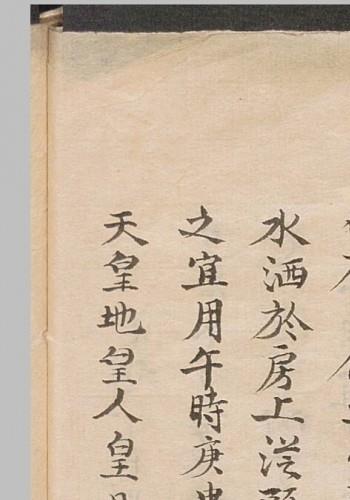 水洒於房上從
之宜用午時庚
天皇地皇人皇